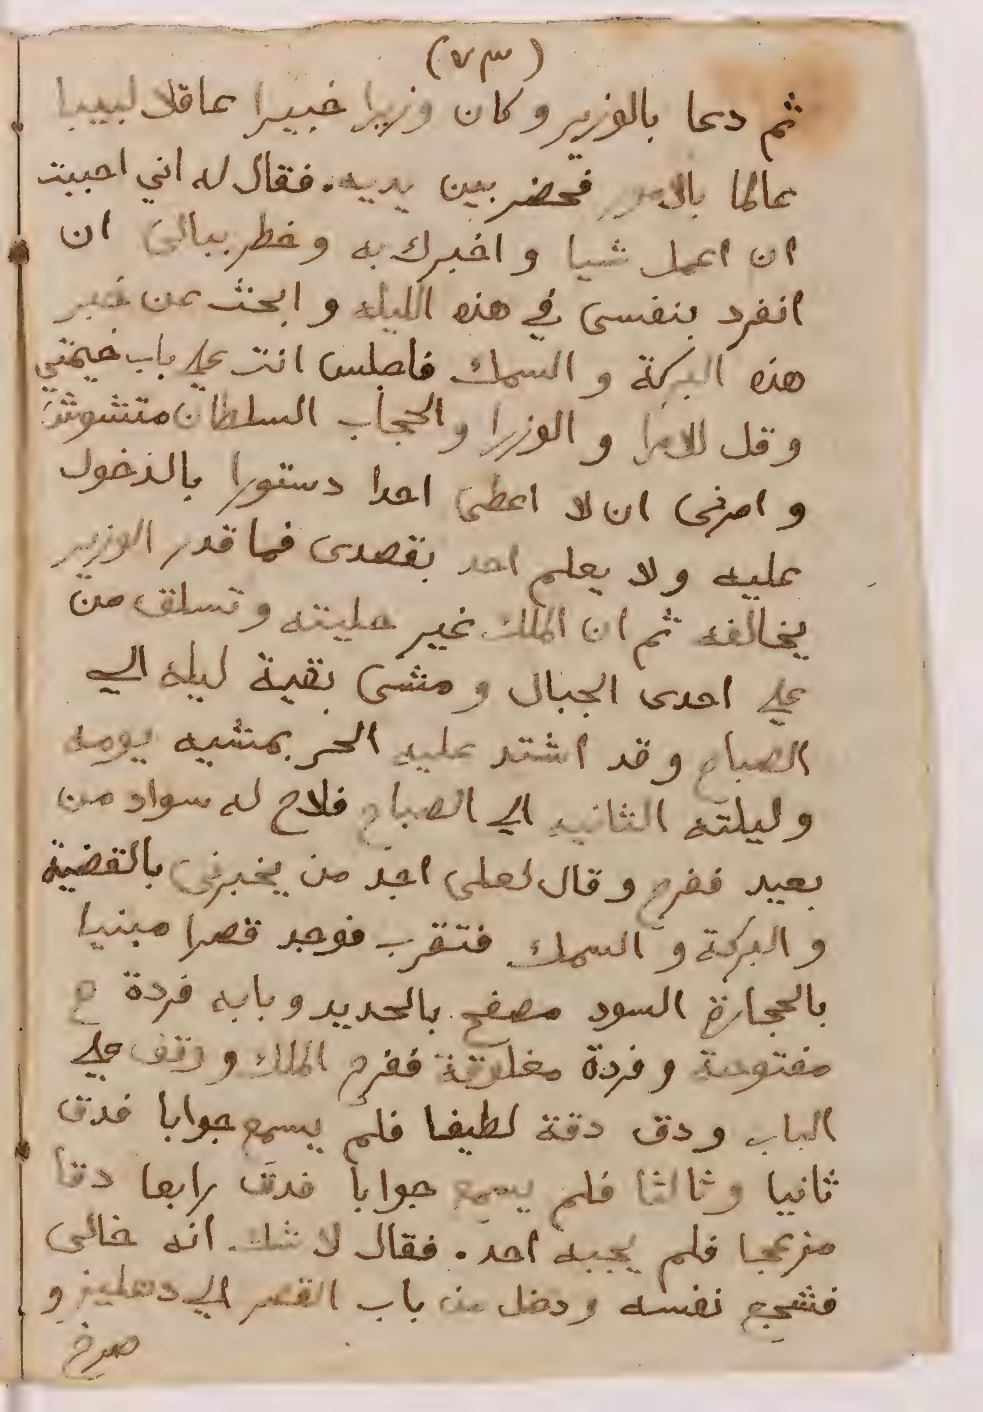 (٧٣)
ثم دعا بالوزير و كان وزيرا خبيرا عاقلا لبيبا
عالما بالامور فحضر بين يديه. فقال له اني احببت
ان اعمل شيا و اخبرك به و خطر ببالى ان
انفرد بنفسى في هذه الليله و ابحث عن خبر
هذه البركة و السمك فاجلس انت على باب خيمتي
و قل للامرا و الوزرا و الحجاب السلطان متشوش
و امرنى ان لا اعطى احدا دستورا بالدخول
عليه و لا يعلم احد بقصدى فما قدر الوزير
يخالفه ثم ان الملك غير حليته و تسلق من
على احدى الجبال و مشى بقية ليله الي
الصباح و قد اشتد عليه الحر بمشيه يومه
و ليلته الثانيه الي الصباح فلاح له سواد من
بعيد ففرح و قال لعلى اجد من يخبرنى بالقضية
و البركة و السمك فتقرب فوجد قصرا مبنيا
بالحجارة السود مصفح بالحديد و بابه فردة
مفتوحة و فردة مغلوقة ففرح الملك و وقف على
الباب و دق دقة لطيفا فلم يسمع جوابا فدق
ثانيا و ثالثا فلم يسمع جوابا فدق رابعا دقا
مزعجا فلم يجبه احد. فقال لا شك انه خالى
فشجع نفسه و دخل من باب القصر الي دهليز و
صرخ